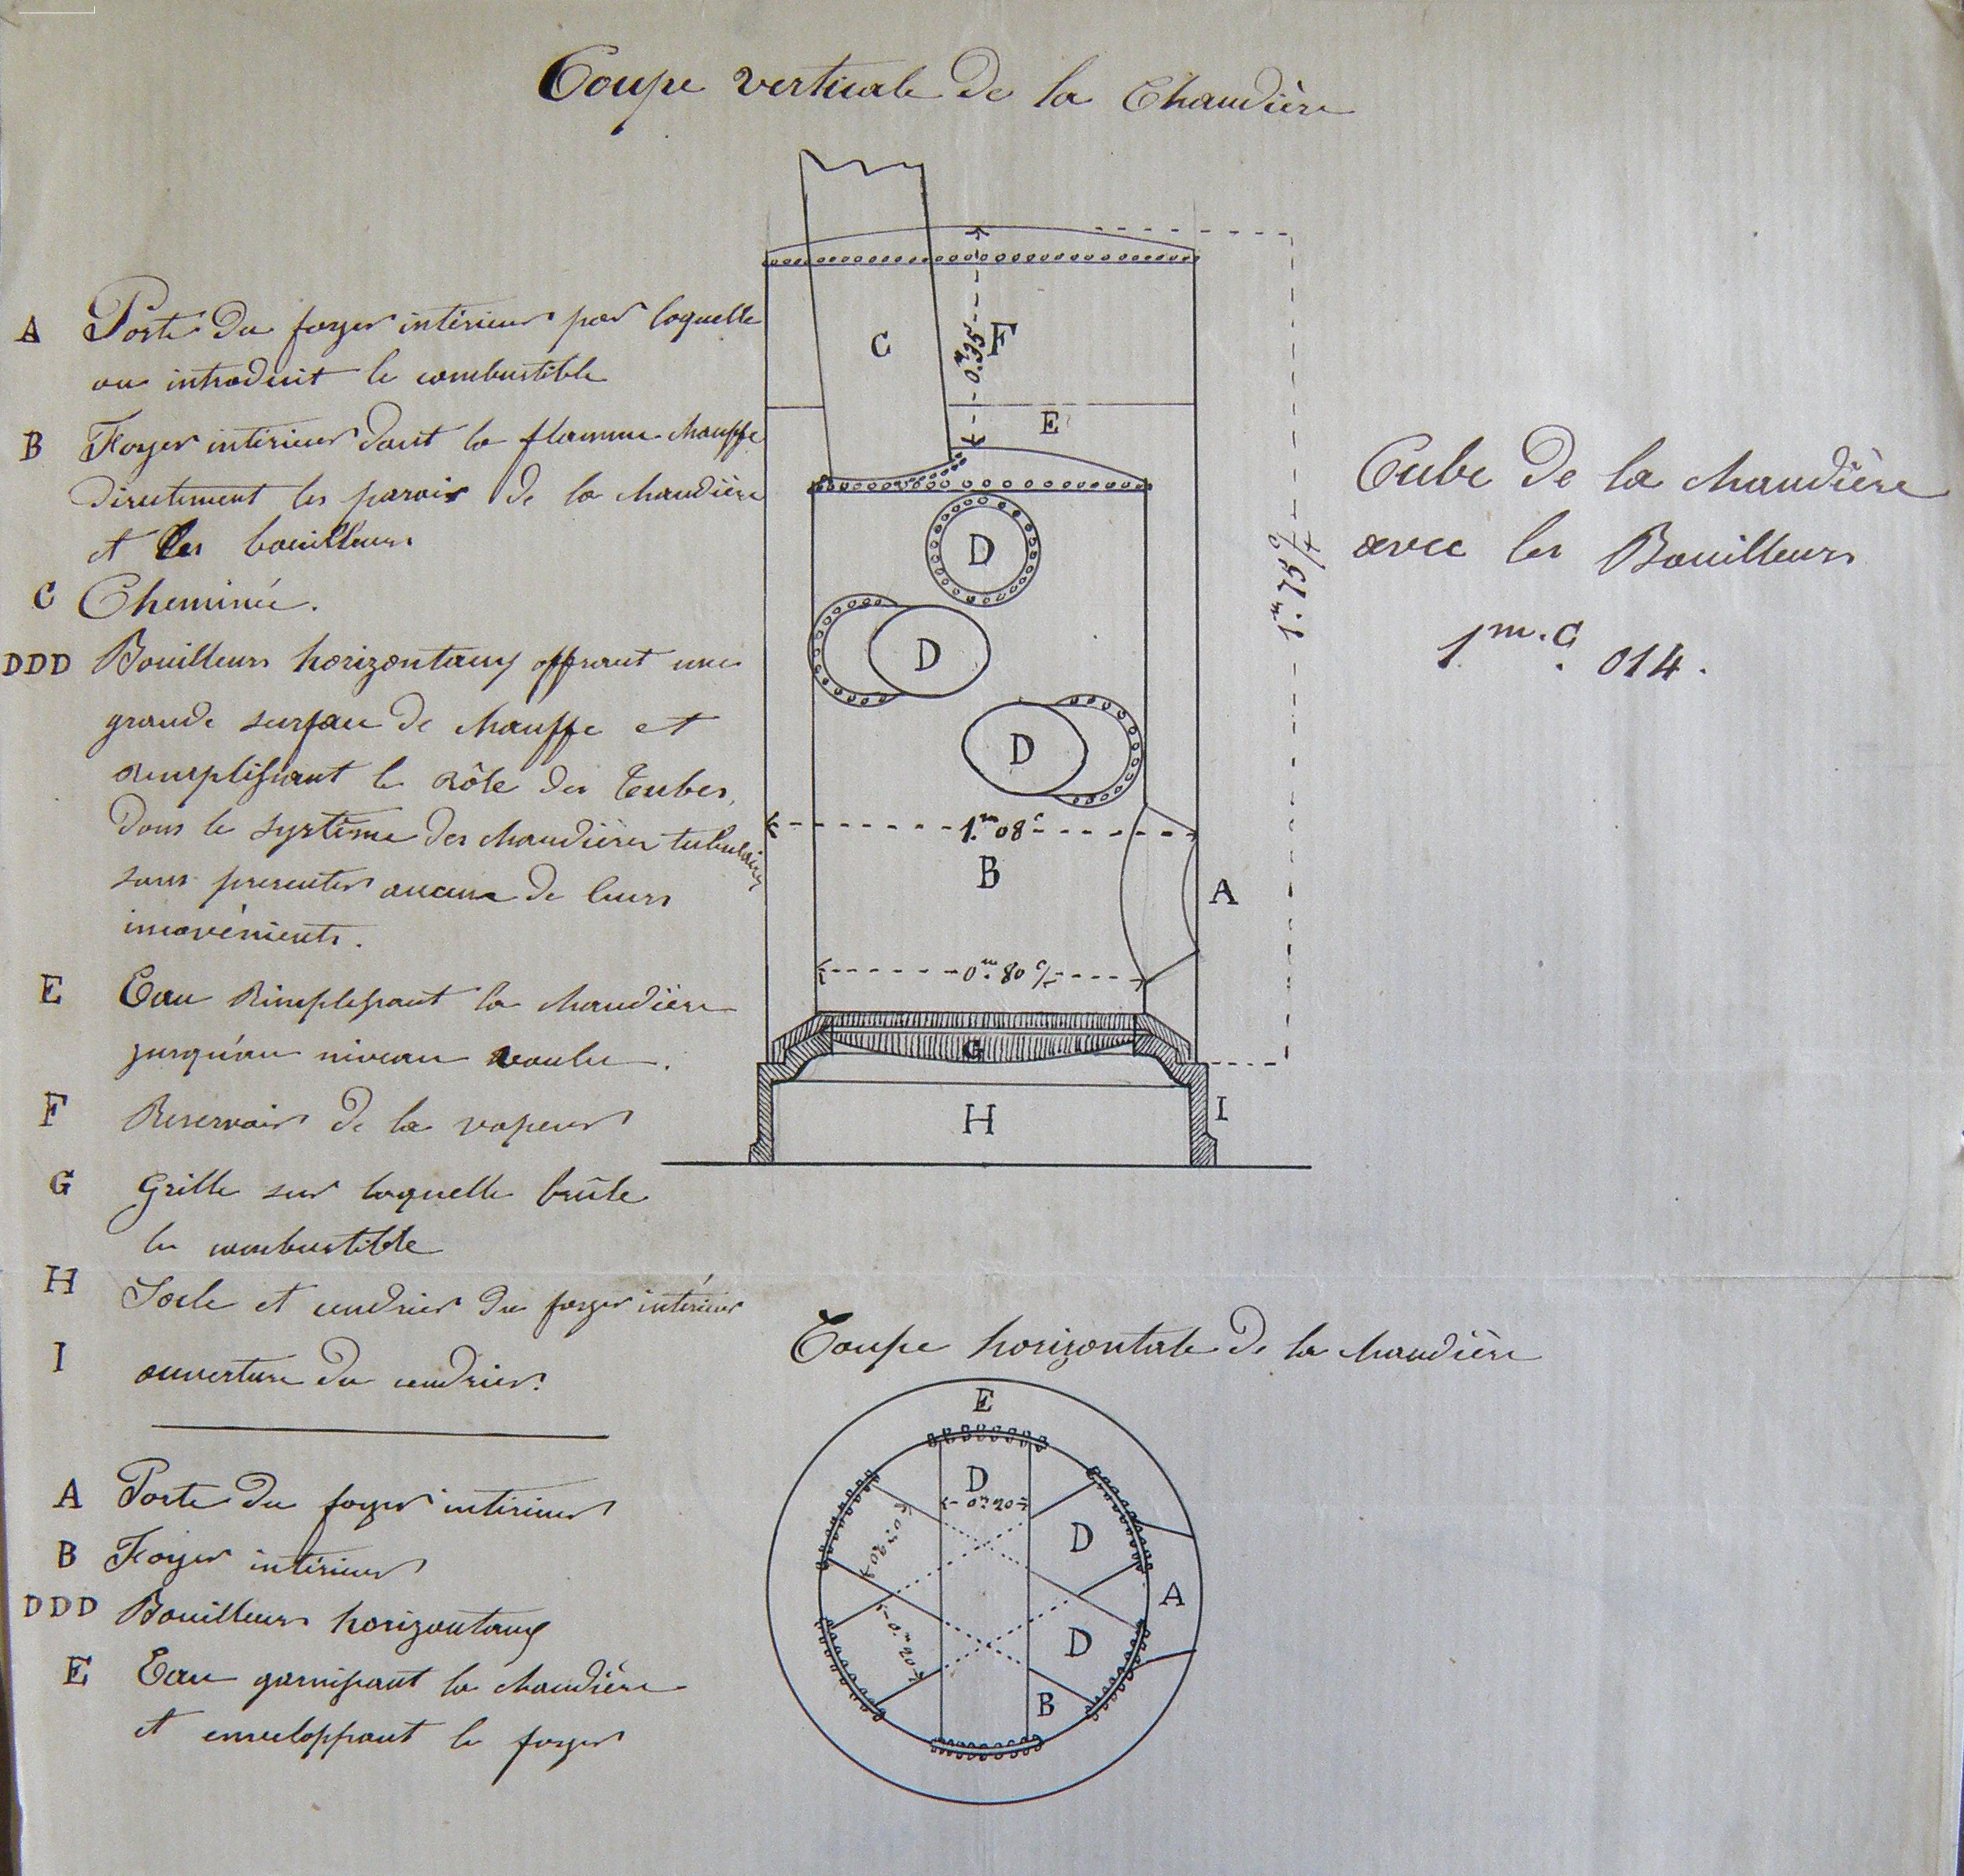 Coupe verticale de la Chaudière
A Porte du foyer intérieur par laquelle
on introduit le combustible
B Foyer intérieur dont la flamme chauffe
directement les parois de la chaudière
et les bouilleurs
C Cheminée.
DDD Bouilleurs horizontaux offrant une
grande surface de chauffe et
remplissant le rôle des Tubes,
dans le système des chaudières tubulaires
sans presenter aucun de leurs
inconvénients.
E Eau Remplissant la chaudière
jusqu'au niveau voulu.
F Reservoir de la vapeur
G Grille sur laquelle brûle
le combustible
H Socle et cendrier du foyer intérieur
I ouverture du cendrier.
A Porte du foyer intérieur
B Foyer intérieur
DDD Bouilleurs horizontaux
E Eau garnissant la chaudière
et enveloppant le foyer
C
0.m35
F
E
D
D
D
1.m08c
B
A
0m.80 c/
G
H
I
Cube de la chaudière
avec les Bouilleurs
1m.c. 014.
Coupe horizontale de la chaudière
E
D
0m20
D
0m20
A
0m20
D
B